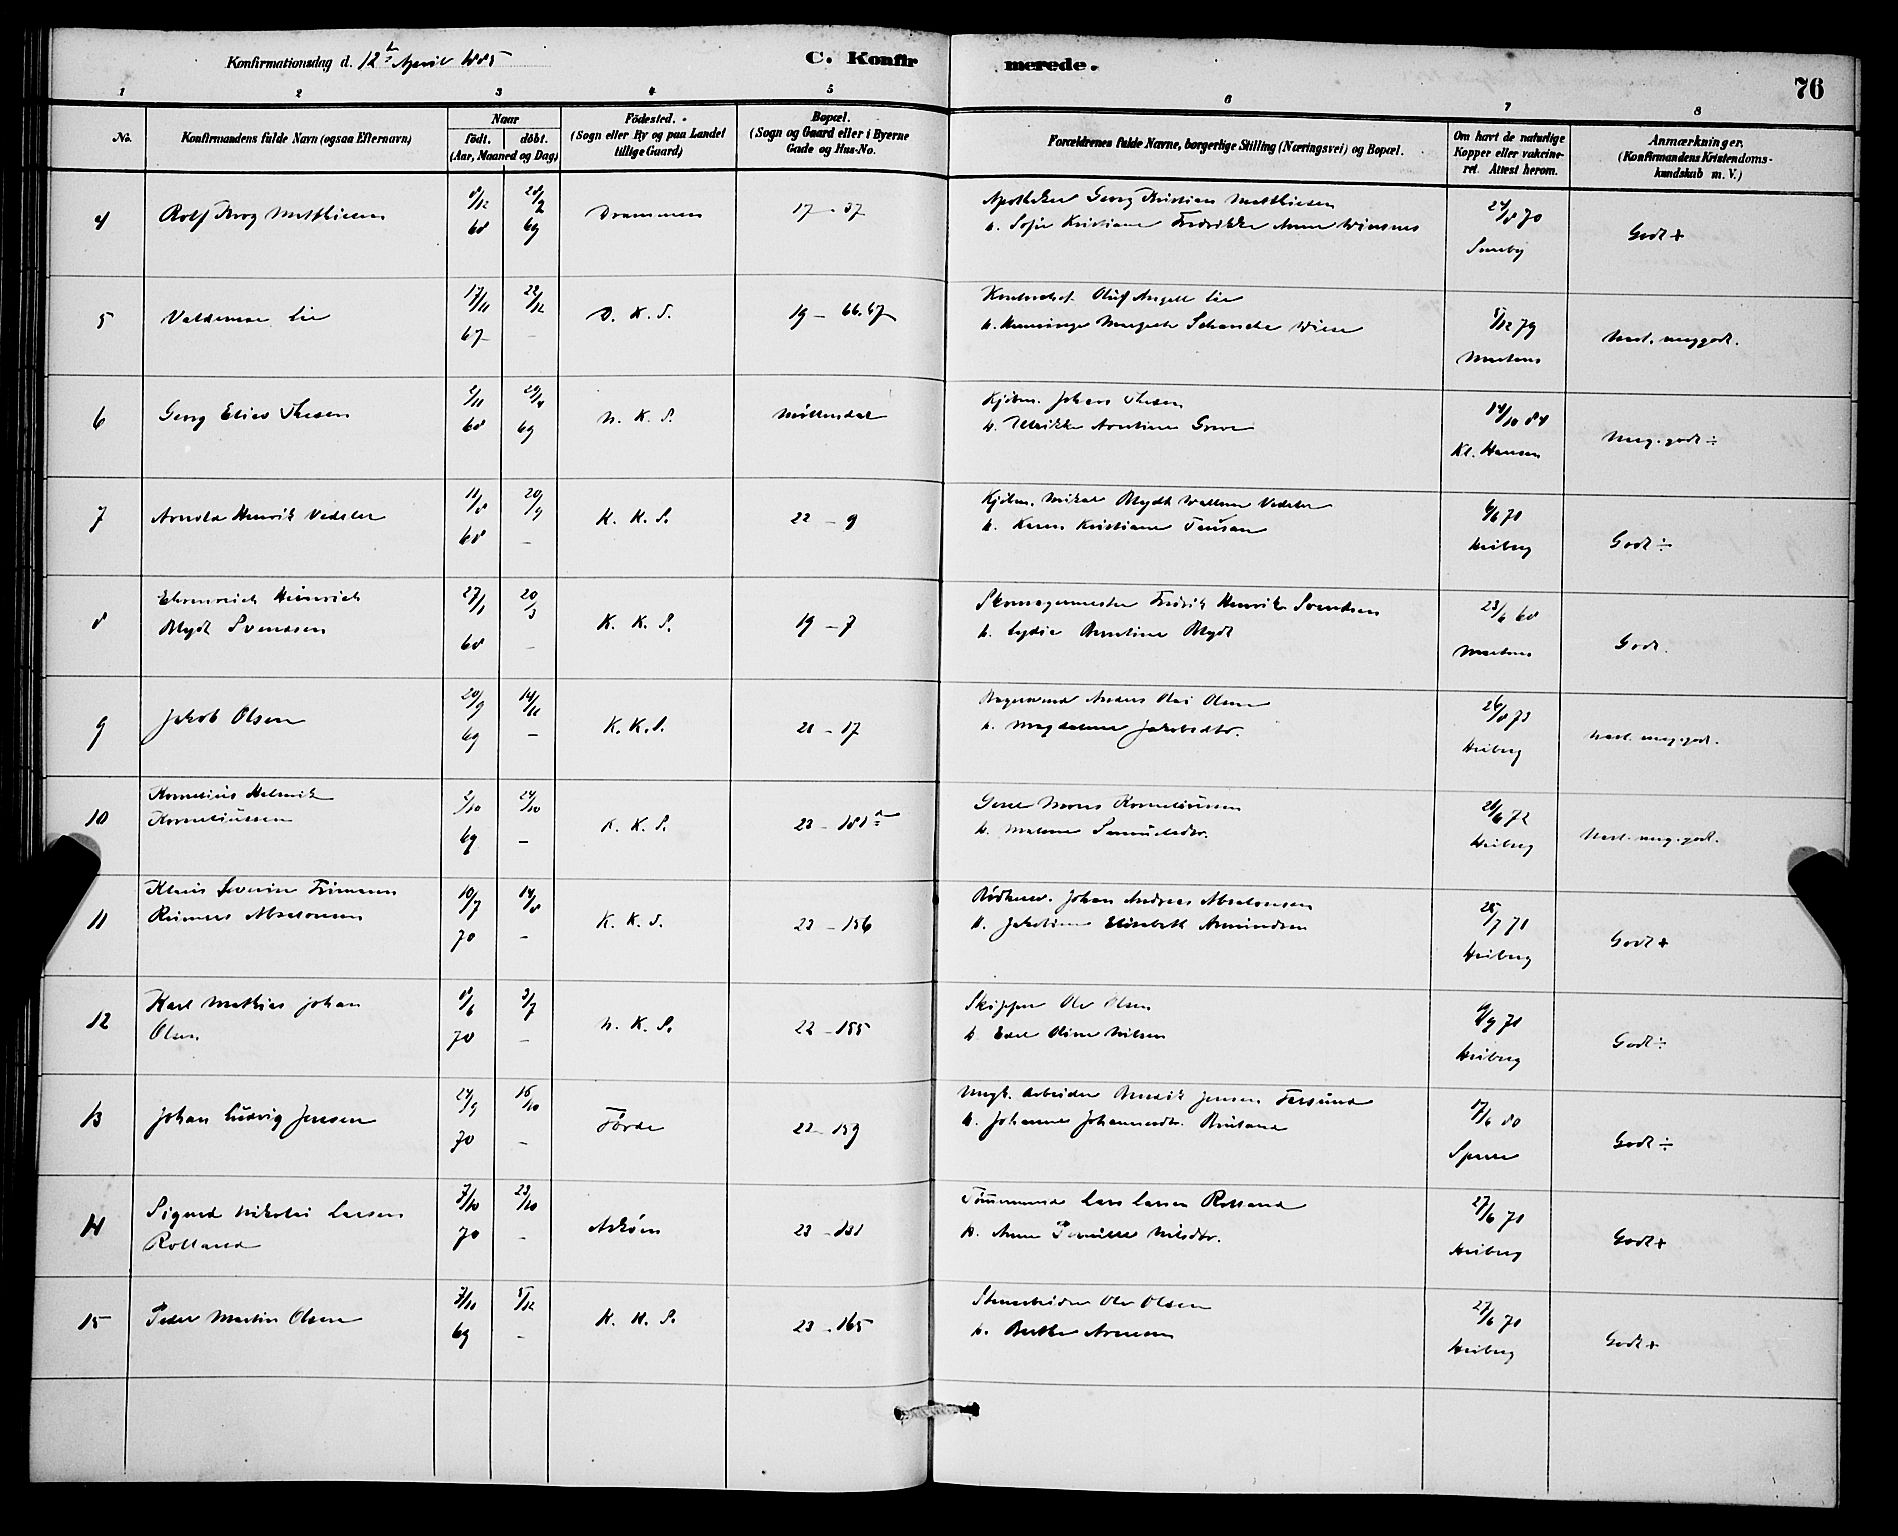 Konfirmationsdag d. 12te April 1885
C. Konfirmerede.
76
1 2 3 4 5 6 7 8
No.
Konfirmandens fulde Navn (ogsaa Efternavn)
Naar
födt. döbt.
(Aar, Maaned og Dag)
Födested.
(Sogn eller By og paa Landet
tillige Gaard)
Bopæl.
(Sogn og Gaard eller i Byerne
Gade og Hus-No.
Forældrenes fulde Navne, borgerlige Stilling (Næringsvei) og Bopæl.
Om havt de naturlige
Kopper eller vakcine-
ret. Attest herom.
Anmærkninger.
(Konfirmandens Kristendoms-
kundskab m. V.)
4 Rolf Krog Matthiesen 8/12 68 28/2 69 Drammen 17 - 37
Apotheker Georg Kristian Matthiesen
h. Sofie Kristiane Fredrikke Anna Winsnes
24/8 70
Godt +
5 Valdemar Lie 17/11 67 22/12 - D. K. S. 19 - 66.67
Oluf Angell Lie
h. Henninge Margrethe Schanche Wiese
8/12 79
Martens
Næst. meg. godt.
6 Georg Elias Thesen 2/11 68 29/4 69 N. K. S. Møllendal
Kjøbm. Johan Thesen
h. Ulrikke Arentine Greve
14/10 84
Kl. Hansen
Meg. godt ÷
7 Arnold Henrik Vedeler 11/8 68 20/9 - K. K. S. 22 - 9
Kjøbm. Mikal Blydt Vedeler
h. Karen Kristiane
6/6 70
Heiberg
Godt ÷
8 Ehrenreich Heinrich
Blydt Svendsen
27/1 68 20/3 - K. K. S. 19 - 7
Skomagermester Fredrik Henrik Svendsen
h. Lydia Berntine Blydt
23/6 68
Martens
Godt.
9 Jakob Olsen 20/9 69 14/11 - K. K. S. 21 - 17
Anders Olai Olsen
h. Magdalene Jakobsdtr.
26/8 73
Heiberg
Næst. meg. godt.
10 Kornelius Helmik
Korneliussen
2/10 69 24/10 - K. K. S. 23 - 181a
Korneliussen
h. Malene Samuelsdtr.
28/6 72
Heiberg
Næst. meg. godt.
11 Klaus Severin Frimann
Reimers Absalonsen
10/7 70 14/8 - K. K. S. 23 - 156
Bødkersv. Johan Andreas Absalonsen
h. Jakobine Elisabeth Amundsen
28/7 71
Heiberg
Godt +
12 Karl Mathias Johan
Olsen
8/6 70 3/7 - N. K. S. 22 - 155
Skipper Ole Olsen
h. Edel Oline Nilsen
6/9 71
Heiberg
Godt ÷
13 Johan Ludvig Jensen 24/9 70 16/10 - Førde 22 - 159
Arbeider Jensen Farsund
h. Johanne Johannesdtr.
17/6 80
Godt ÷
14 Sigurd Nikolai Larsen
Rolland
7/10 70 23/10 - Askøen 23 - 131
Tømmermand Lars Larsen Rolland
h. Anne Pernille Nilsdtr.
27/6 71
Heiberg
Godt +
15 Peder Martin Olsen 7/11 69 5/12 - K. K. S. 23 - 165
Stenarbeider Ole Olsen
h. Berthe Arnesen
27/6 71
Heiberg
Godt +